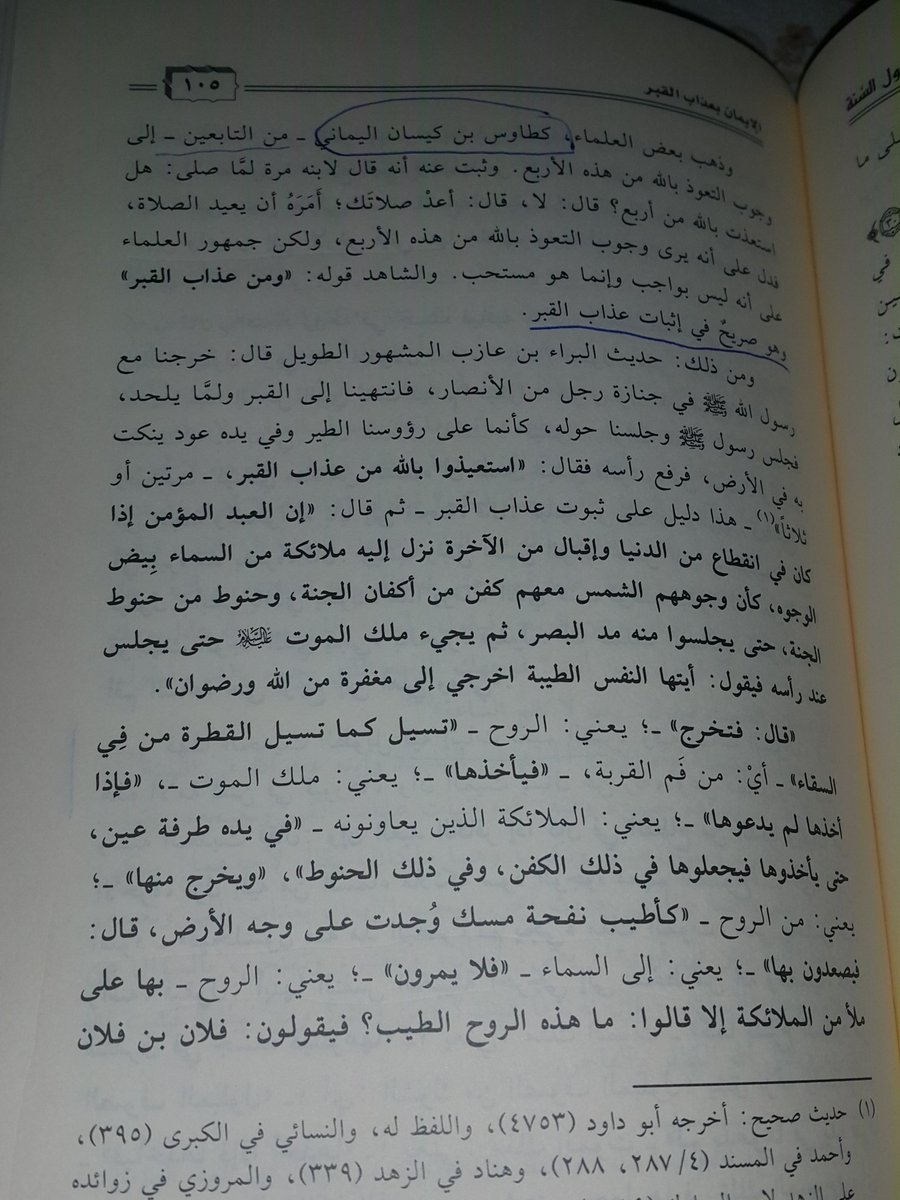 ١٠٥
الإيمان بعذاب القبر
وذهب بعض العلماء، كطاوس بن كيسان اليماني ـ من التابعين ـ إلى
وجوب التعوذ بالله من هذه الأربع. وثبت عنه أنه قال لابنه مرة لمَّا صلى: هل
استعذت بالله من أربع؟ قال: لا، قال: أعدْ صلاتَك؛ أَمَرَهُ أن يعيد الصلاة،
فدل على أنه يرى وجوب التعوذ بالله من هذه الأربع، ولكن جمهور العلماء
على أنه ليس بواجب وإنما هو مستحب. والشاهد قوله: «ومن عذاب القبر»
وهو صريحٌ في إثبات عذاب القبر.
ومن ذلك: حديث البراء بن عازب المشهور الطويل قال: خرجنا مع
رسول الله ﷺ في جنازة رجل من الأنصار، فانتهينا إلى القبر ولمَّا يلحد،
فجلس رسول ﷺ وجلسنا حوله، كأنما على رؤوسنا الطير وفي يده عود ينكت
به في الأرض، فرفع رأسه فقال: «استعيذوا بالله من عذاب القبر، ـ مرتين أو
ثلاثاً»(١) ـ هذا دليل على ثبوت عذاب القبر ـ ثم قال: «إن العبد المؤمن إذا
كان في انقطاع من الدنيا وإقبال من الآخرة نزل إليه ملائكة من السماء بِيض
الوجوه، كأن وجوههم الشمس معهم كفن من أكفان الجنة، وحنوط من حنوط
الجنة، حتى يجلسوا منه مد البصر، ثم يجيء ملك الموت عليه السلام حتى يجلس
عند رأسه فيقول: أيتها النفس الطيبة اخرجي إلى مغفرة من الله ورضوان».
«قال: فتخرج» ـ؛ يعني: الروح ـ «تسيل كما تسيل القطرة من فِي
السقاء» ـ أيْ: من فَم القربة، ـ «فيأخذها» ـ؛ يعني: ملك الموت ـ، «فإذا
أخذها لم يدعوها» ـ؛ يعني: الملائكة الذين يعاونونه ـ «في يده طرفة عين،
حتى يأخذوها فيجعلوها في ذلك الكفن، وفي ذلك الحنوط»، «ويخرج منها» ـ؛
يعني: من الروح ـ «كأطيب نفحة مسك وُجدت على وجه الأرض، قال:
فيصعدون بها» ـ؛ يعني: إلى السماء ـ «فلا يمرون» ـ؛ يعني: الروح ـ بها على
ملأ من الملائكة إلا قالوا: ما هذه الروح الطيب؟ فيقولون: فلان بن فلان
(١) حديث صحيح: أخرجه أبو داود (٤٧٥٣)، واللفظ له، والنسائي في الكبرى (٣٩٥)،
وأحمد في المسند (٤/ ٢٨٧، ٢٨٨)، وهناد في الزهد (٣٣٩)، والمروزي في زوائده